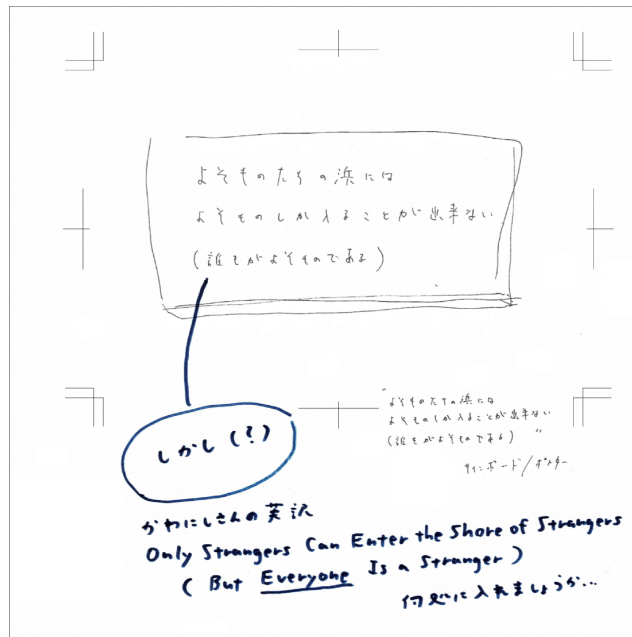 よそものたちの浜には
よそものしか入ることが出来ない
(誰もがよそものである)
"よそものたちの浜には
よそものしか入ることが出来ない
(誰もがよそものである)"
サインボード/ポスター
しかし(?)
かわにしさんの英訳
Only Strangers Can Enter the Shore of Strangers
( But Everyone Is a Stranger )
何処に入れましょうか...